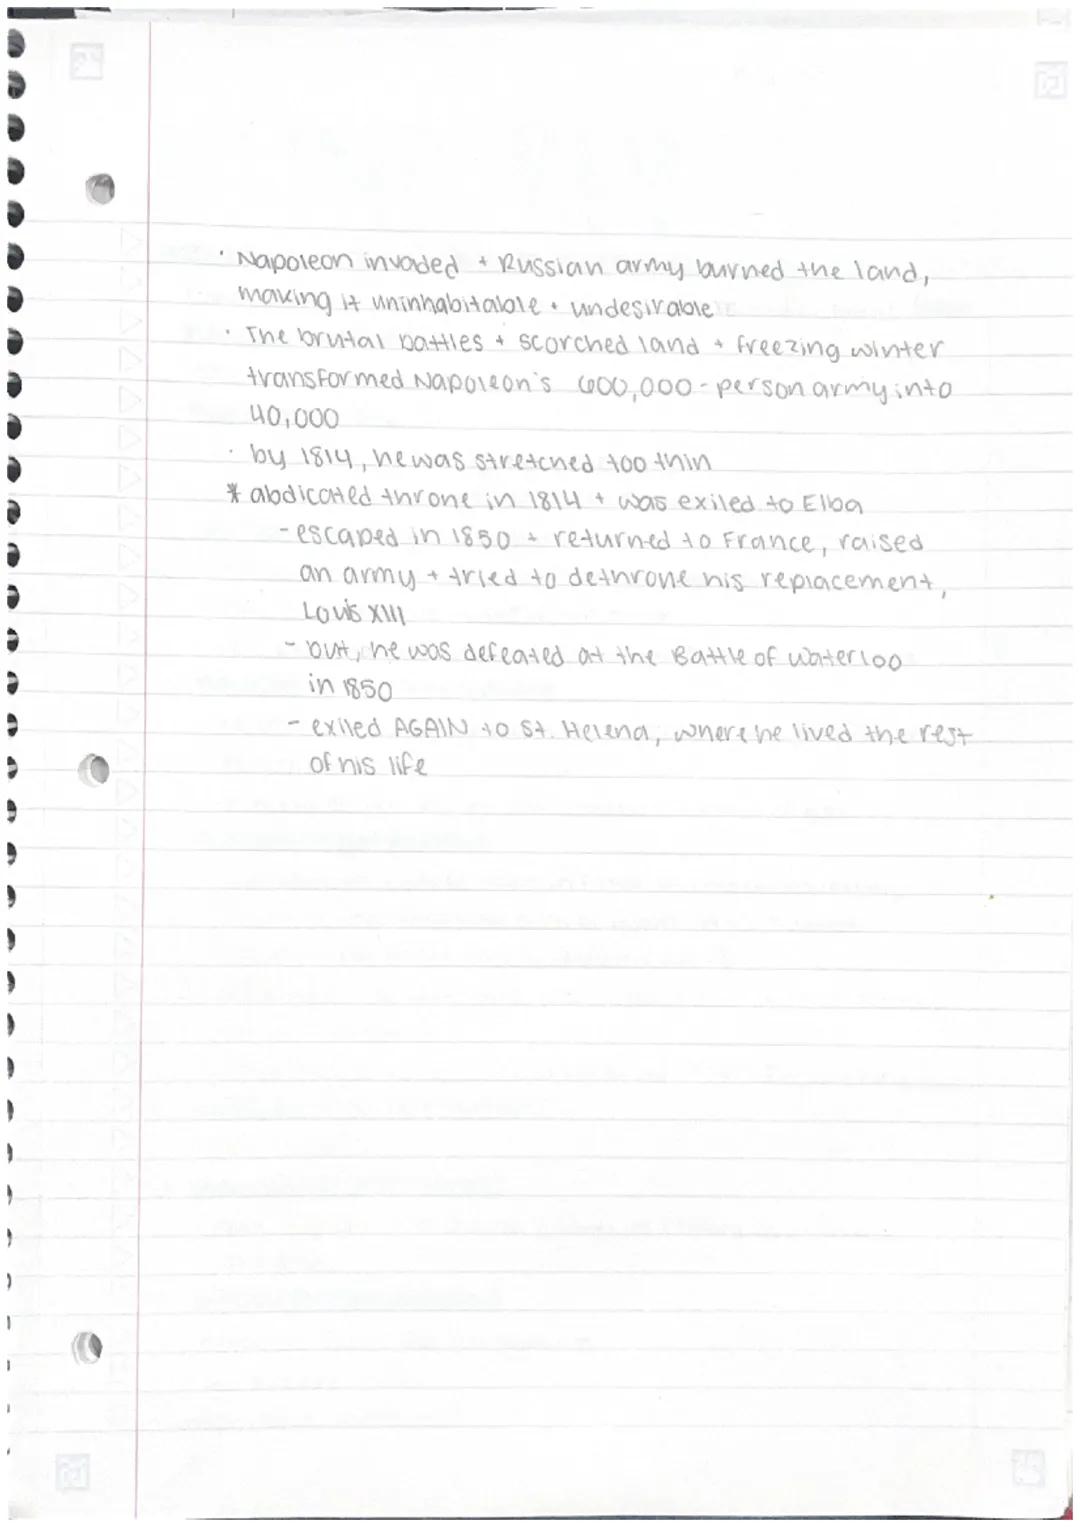 · Napoleon invaded + Russian army burned the land,
making it uninhabitable + undesirable
· The brutal battles + scorched land + freezing winter
transformed Napoleon's 600,000-person army into
40,000
· by 1814, he was stretched too thin
* abdicated throne in 1814 + was exiled to Elba
- escaped in 1850 + returned to France, raised
an army + tried to dethrone his replacement,
Louis XIII
- but, he was defeated at the Battle of Waterloo
in 1850
- exiled AGAIN to St. Helena, where he lived the rest
of his life